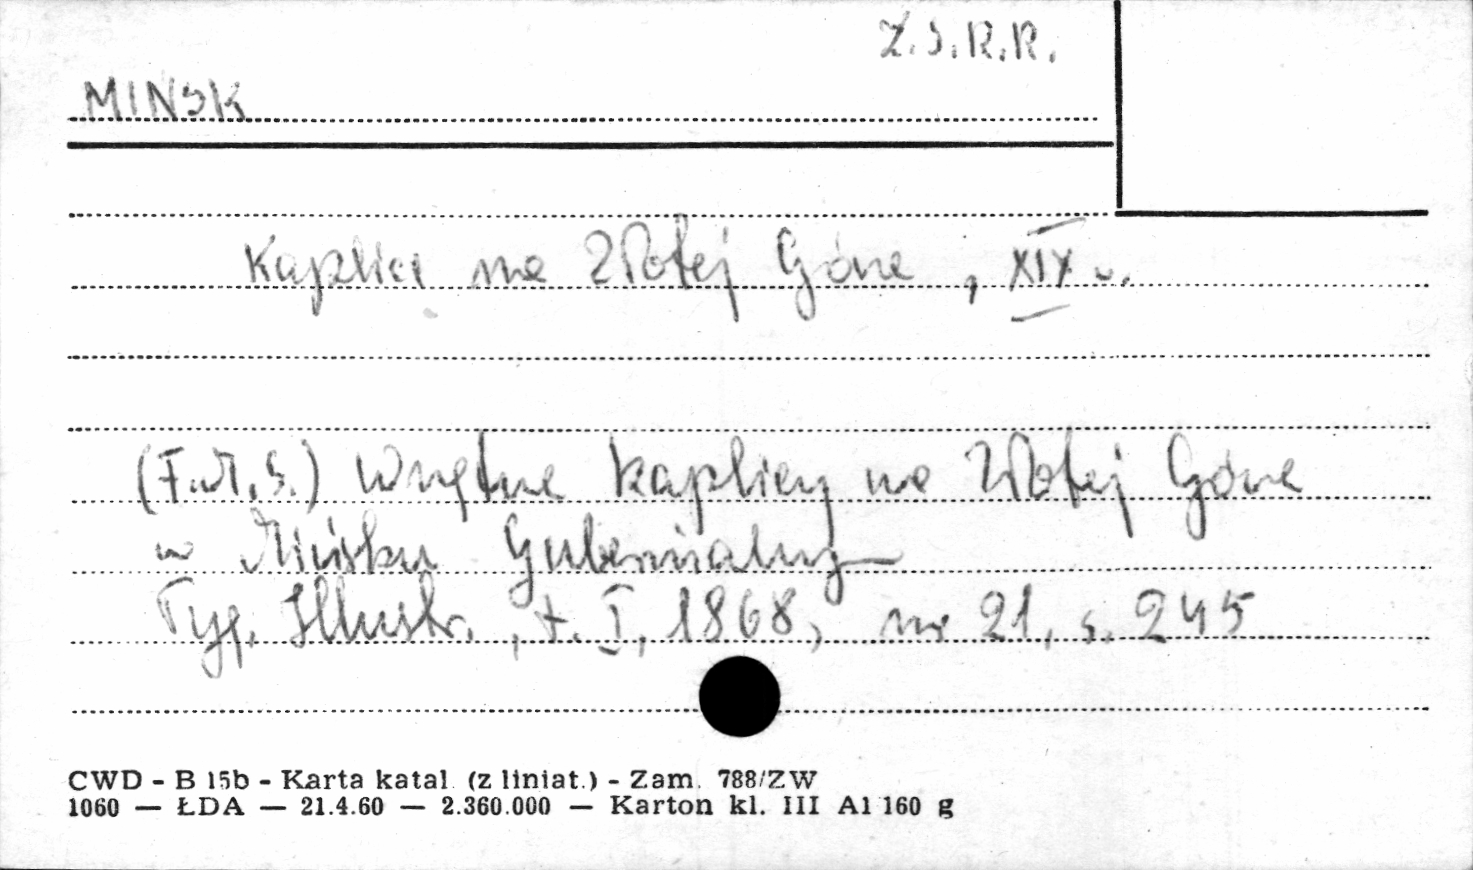 Z.S.R.R.
MINSK
Kaplica na Złotej Górze, XIX w.
(F.M.S.) Wnętrze kaplicy na Złotej Górze
w Mińsku Gubernialnym
Tyg. Illustr., t. I, 1868, nr 21, s. 245
CWD - B 15b - Karta katal. (z liniat.) - Zam. 788/ZW
1060 — ŁDA — 21.4.60 — 2.360.000 — Karton kl. III A1 160 g